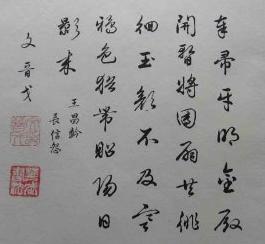 奉帚平明金殿
開暫將團扇共徘
徊玉顏不及寒
鴉色猶帶昭陽日
影來
王昌齡
長信怨